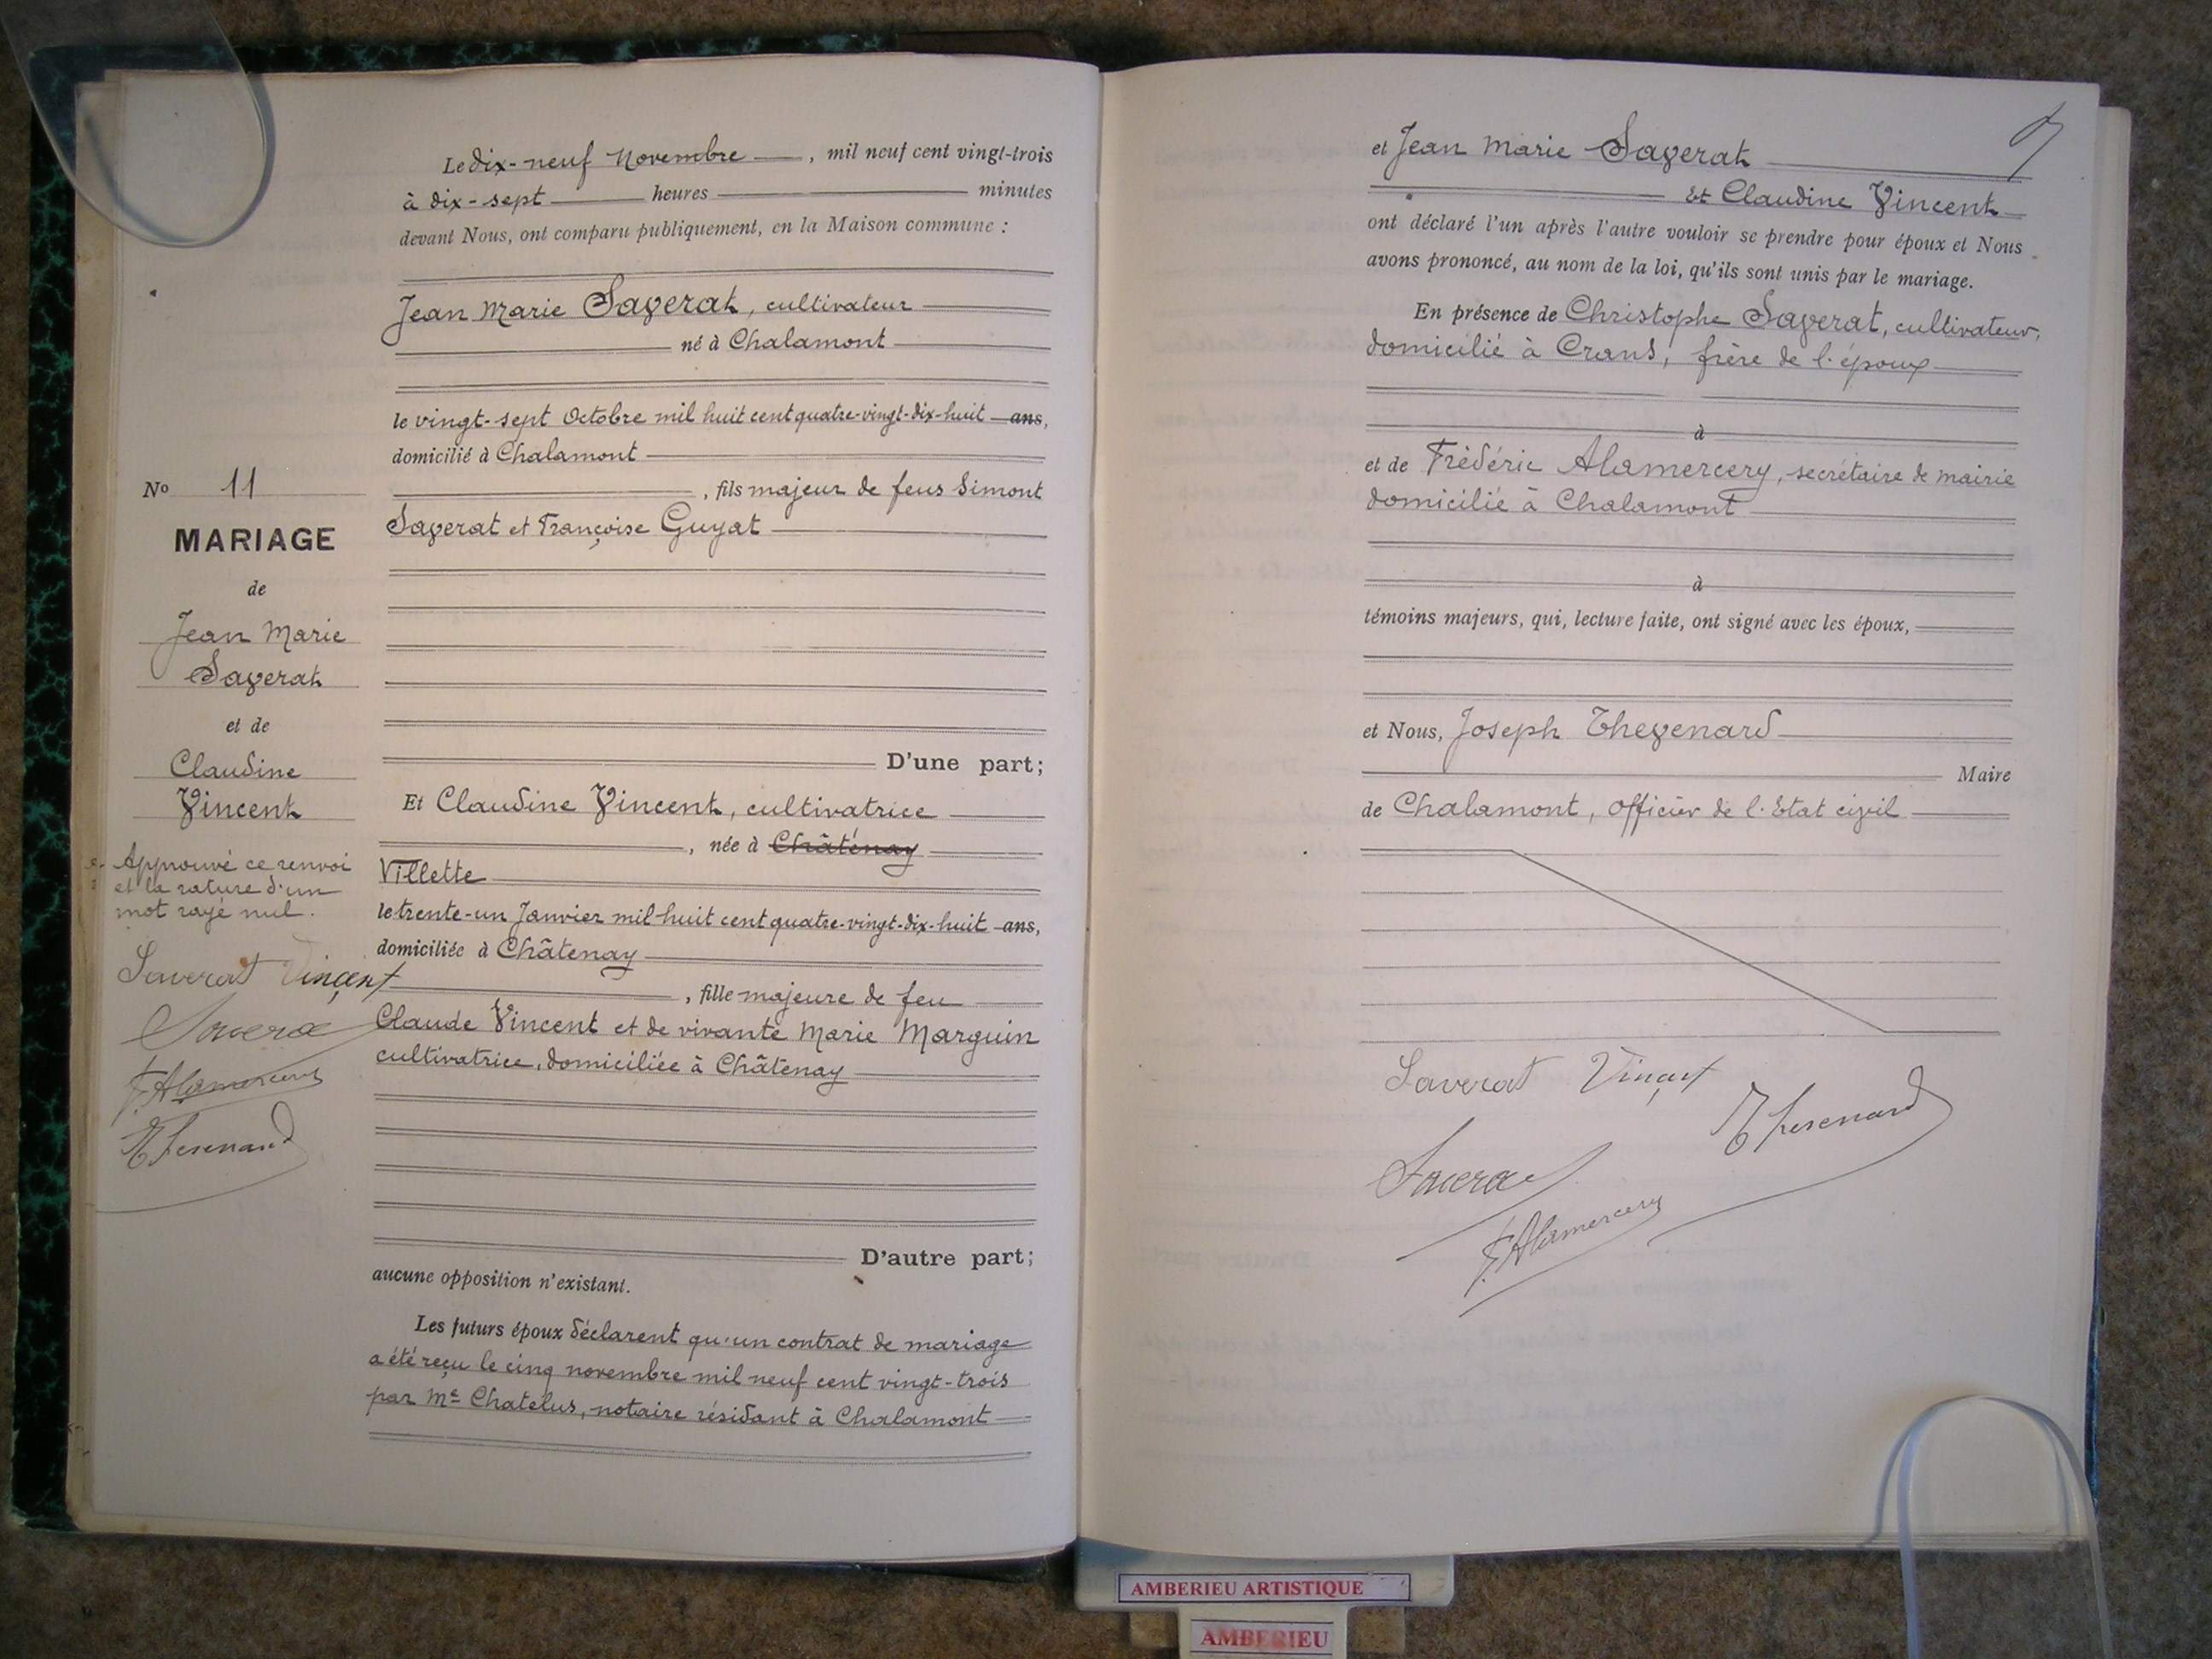 Le dix-neuf Novembre, mil neuf cent vingt-trois
à dix-sept heures minutes
devant Nous, ont comparu publiquement, en la Maison commune :
Jean Marie Saverat, cultivateur
né à Chalamont
le vingt-sept Octobre mil huit cent quatre-vingt-dix-huit ans,
domicilié à Chalamont
, fils majeur de feus Simont
Saverat et Françoise Guyat
D'une part;
Et Claudine Vincent, cultivatrice
, née à Châtenay
Villette
le trente-un Janvier mil huit cent quatre-vingt-dix-huit ans,
domiciliée à Châtenay
, fille majeure de feu
Claude Vincent et de vivante Marie Marguin
cultivatrice, domiciliée à Châtenay
D'autre part;
aucune opposition n'existant.
Les futurs époux déclarent qu'un contrat de mariage
a été reçu le cinq novembre mil neuf cent vingt-trois
par Me Chatelus, notaire résidant à Chalamont
No 11
MARIAGE
de
Jean Marie
Saverat
et de
Claudine
Vincent
Approuvé ce renvoi
et la rature d'un
mot rayé nul.
Saverat Vincent
Saverat
F. Alamercery
Thevenard
et Jean Marie Saverat
Et Claudine Vincent
ont déclaré l'un après l'autre vouloir se prendre pour époux et Nous
avons prononcé, au nom de la loi, qu'ils sont unis par le mariage.
En présence de Christophe Saverat, cultivateur,
domicilié à Crans, frère de l'époux
à
et de Frédéric Alamercery, secrétaire de mairie
domicilié à Chalamont
à
témoins majeurs, qui, lecture faite, ont signé avec les époux,
et Nous, Joseph Thevenard
Maire
de Chalamont, officier de l'Etat civil
Saverat Vincent
Thevenard
Saverat
F. Alamercery
AMBERIEU ARTISTIQUE
AMBERIEU